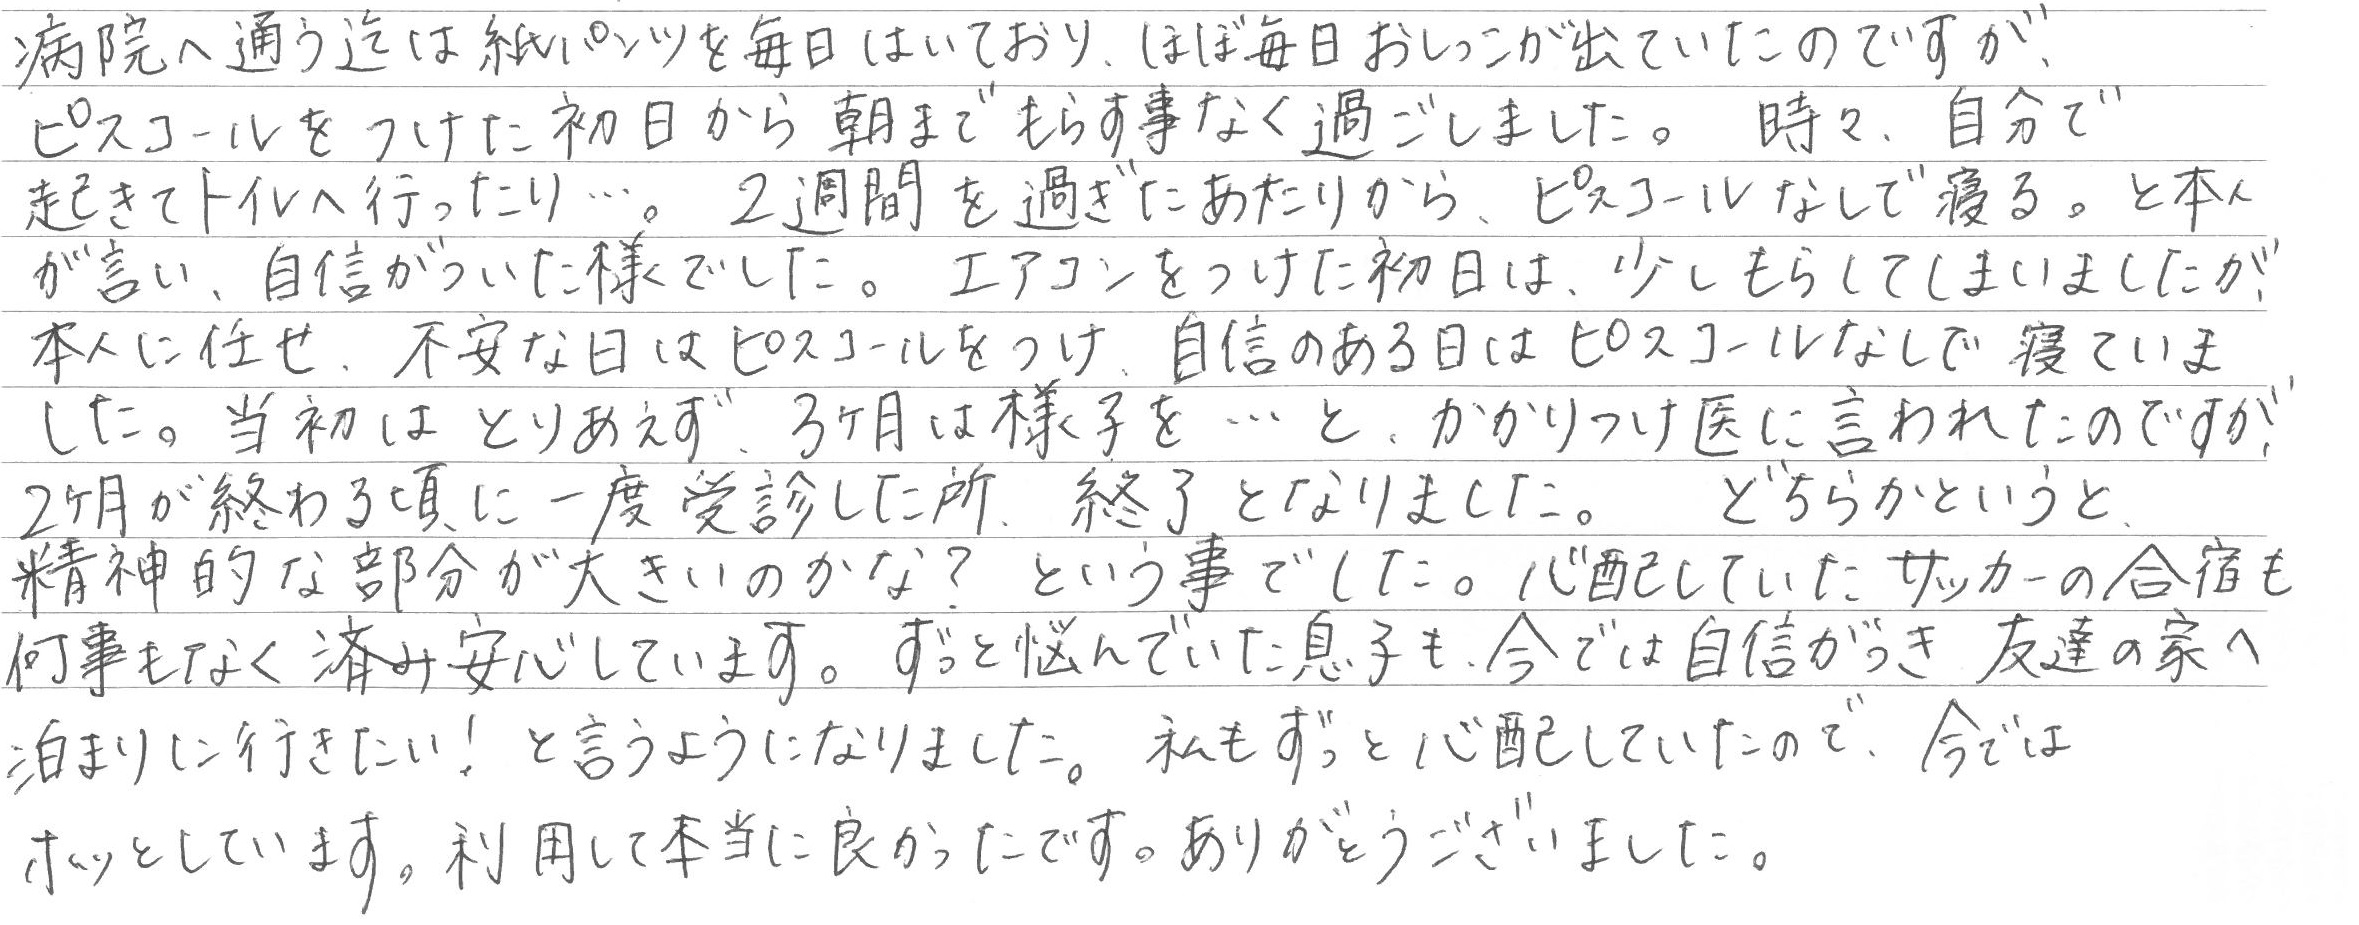 病院へ通う迄は紙パンツを毎日はいており、ほぼ毎日おしっこが出ていたのですが、
ピスコールをつけた初日から朝までもらす事なく過ごしました。 時々、自分で
起きてトイレへ行ったり…。 2週間を過ぎたあたりから、ピスコールなしで寝る。と本人
が言い、自信がついた様でした。 エアコンをつけた初日は、少しもらしてしまいましたが、
本人に任せ、不安な日はピスコールをつけ、自信のある日はピスコールなしで寝ていま
した。当初はとりあえず、3ヶ月は様子を…と、かかりつけ医に言われたのですが、
2ヶ月が終わる頃に一度受診した所、終了となりました。 どちらかというと、
精神的な部分が大きいのかな? という事でした。心配していたサッカーの合宿も
何事もなく済み安心しています。ずっと悩んでいた息子も、今では自信がつき 友達の家へ
泊まりに行きたい! と言うようになりました。 私もずっと心配していたので、今では
ホッとしています。利用して本当に良かったです。ありがとうございました。